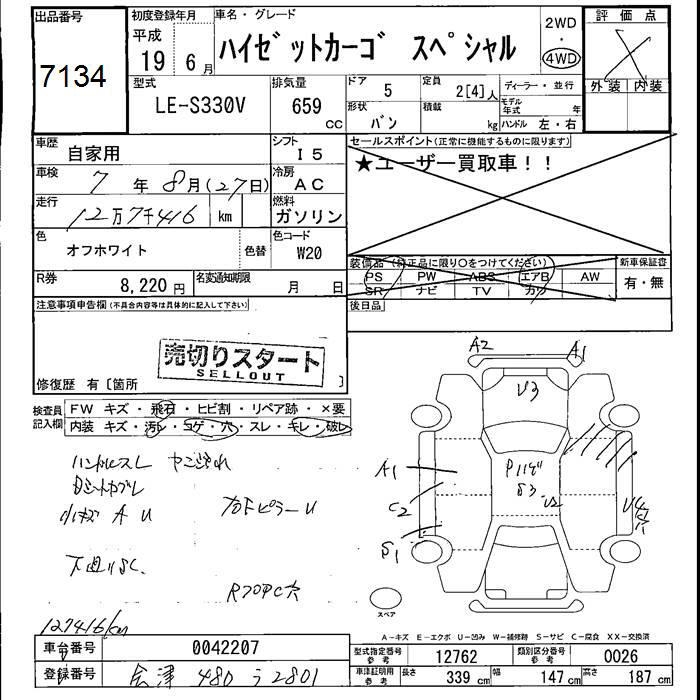 出品番号
7134
初度登録年月
平成
19 6月
車名・グレード
ハイゼットカーゴ スペシャル
2WD
・
4WD
評価点
外装 内装
型式
LE-S330V
排気量
659
CC
ドア
5
定員
2[4]人
形状
バン
積載
kg
ディーラー・並行
モデル年式 年
ハンドル 左・右
車歴
自家用
シフト
I5
車検
7年8月(27日)
冷房
AC
走行
12万7千416 km
燃料
ガソリン
色
オフホワイト
色替
色コード
W20
R券
8,220円
名変通知期限
月 日
セールスポイント(正常に機能するものに限ります)
★ユーザー買取車!!
装備品(純正品に限り○をつけてください)
PS PW ABS エアB AW
SR ナビ TV カワ
新車保証書
有・無
後日品
注意事項申告欄(不具合内容等は具体的に記入して下さい)
売切りスタート
SELLOUT
修復歴 有〔箇所 〕
検査員記入欄
FW キズ・飛石・ヒビ割・リペア跡・×要
内装 キズ・汚レ・コゲ・穴・スレ・キレ・破レ
小キズ A U
R70PC穴
127416km
A2 A1
V3
A1
C2
S1
U2
スペア
A-キズ E-エクボ U-凹み W-補修跡 S-サビ C-腐食 XX-交換済
車台番号
0042207
登録番号
会津 480 う 2801
型式指定番号
参考
12762
類別区分番号
参考
0026
車津証明用
参考
長さ
339 cm
幅
147 cm
高さ
187 cm